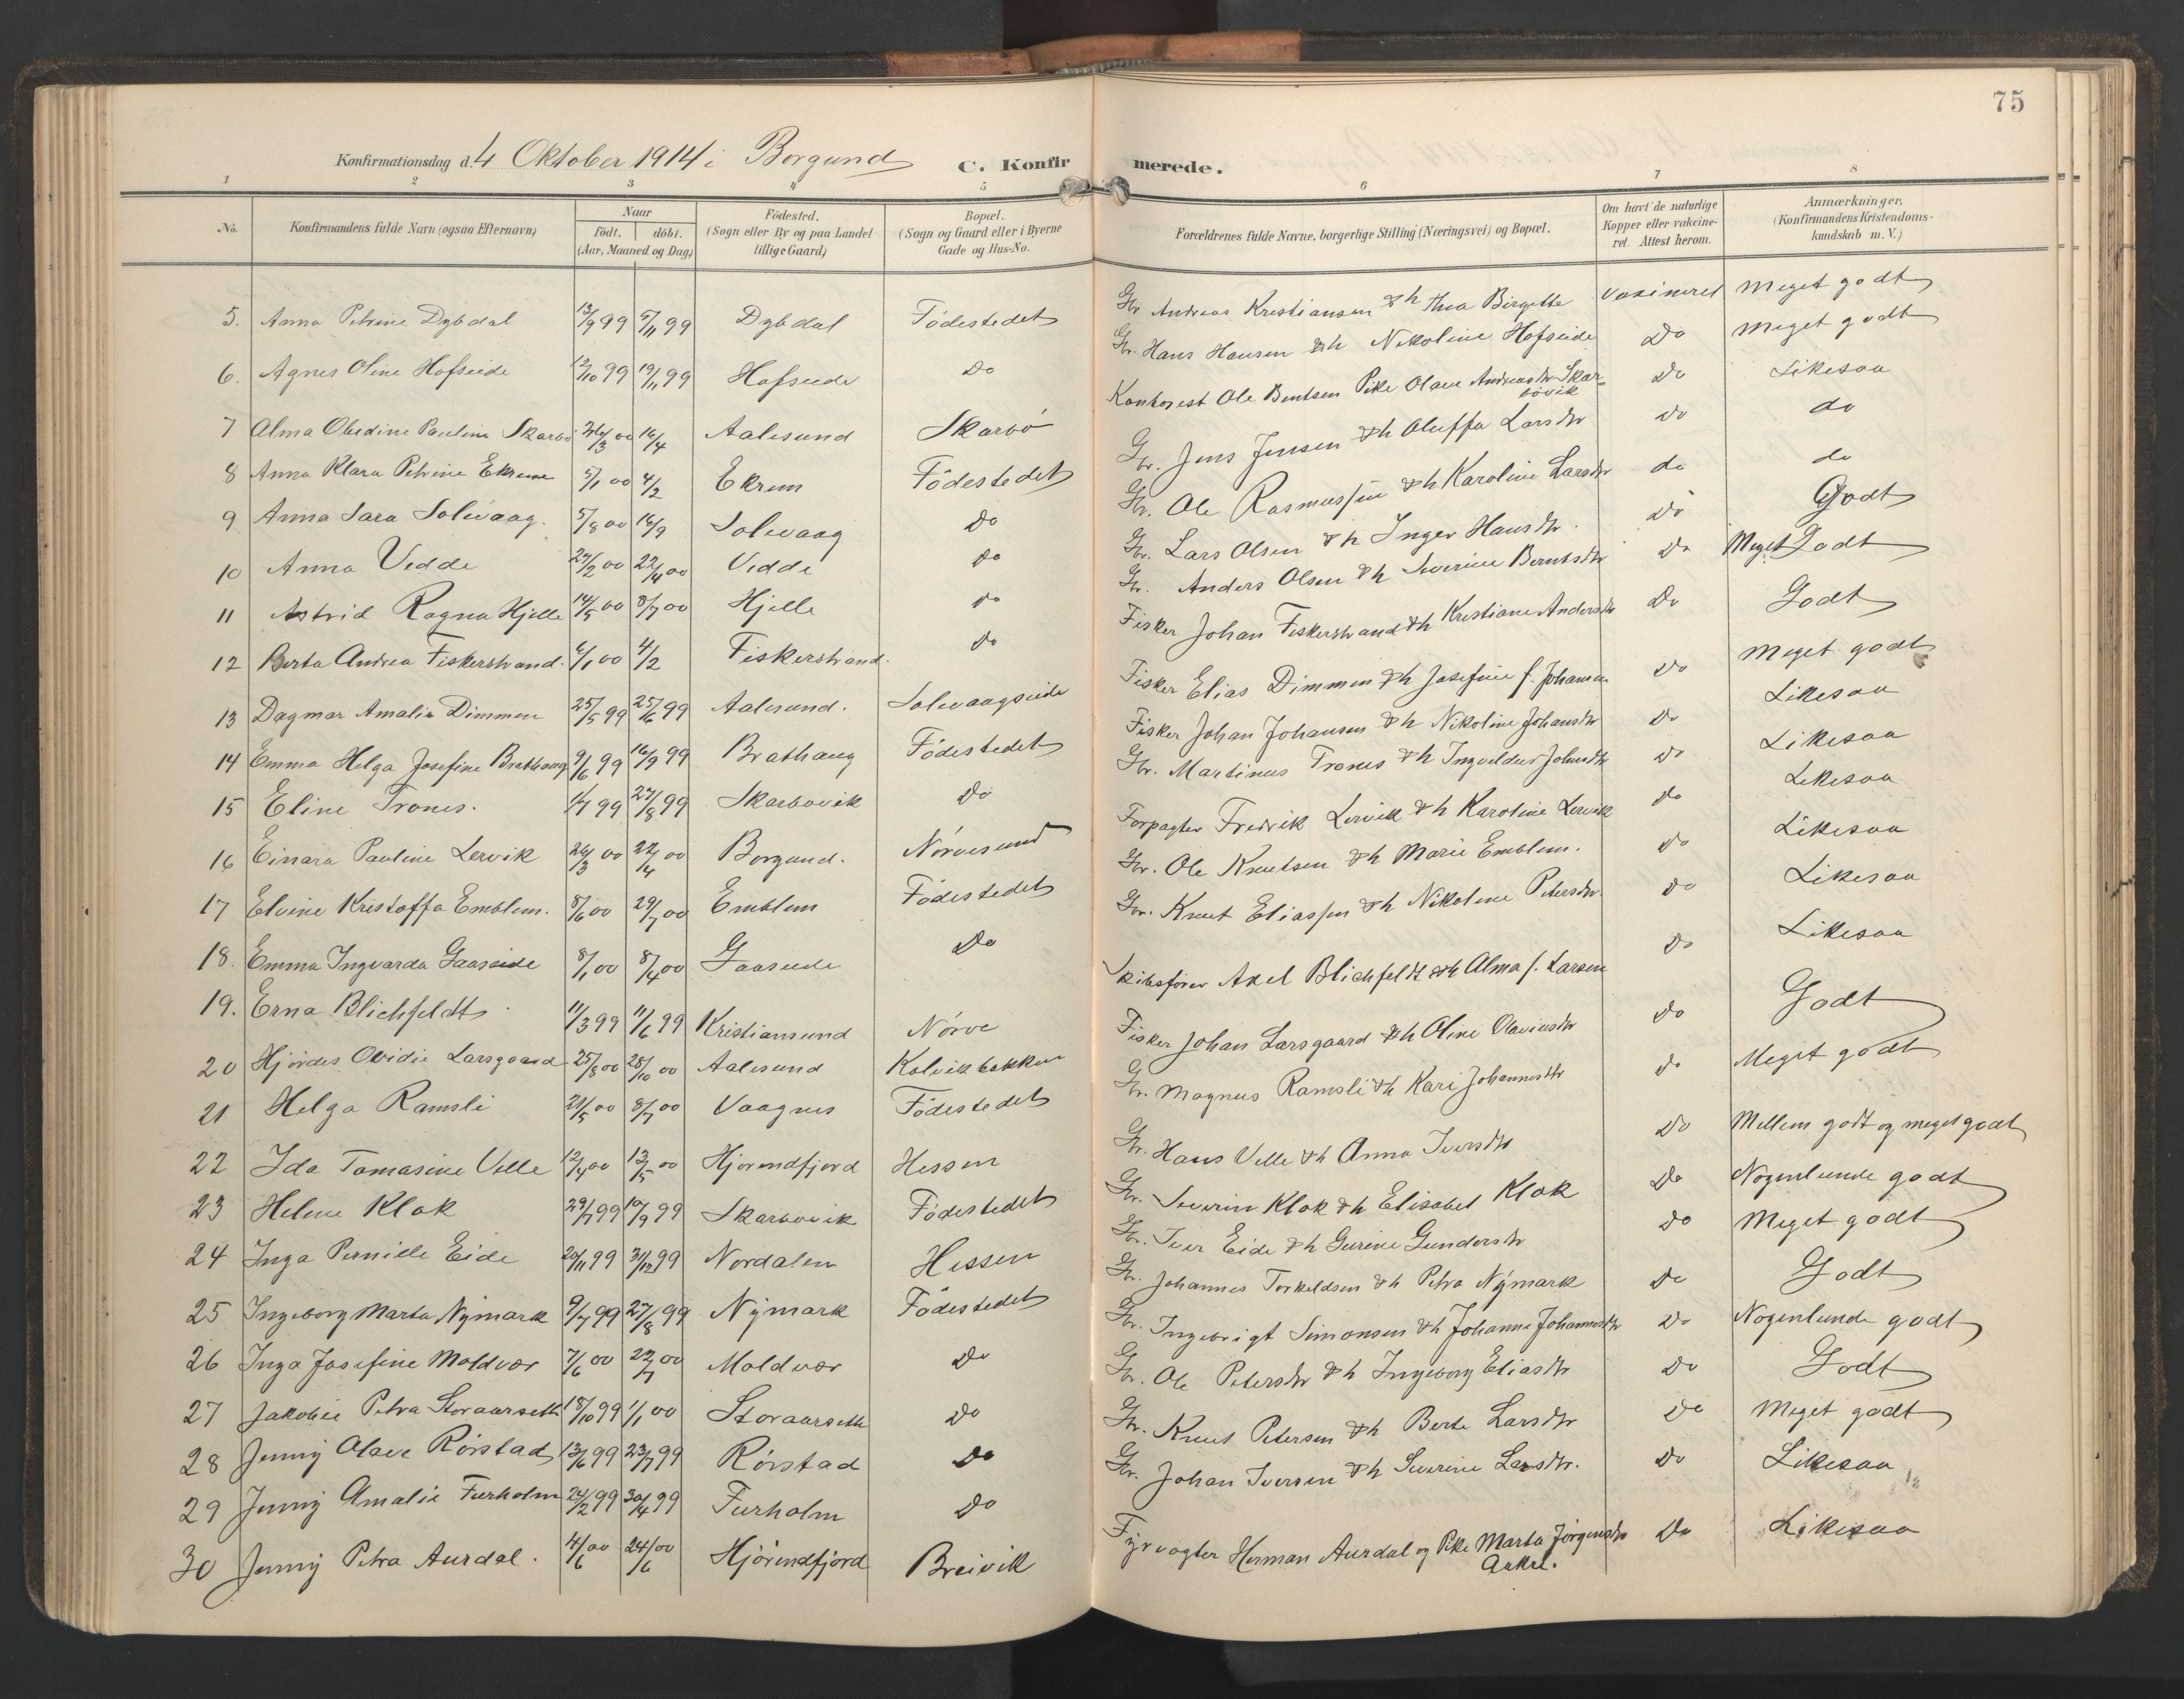 75
Konfirmationsdag d. 4 Oktober 1914 i Borgund C. Konfirmerede.
1 2 3 4 5 6 7 8
No. Konfirmandens fulde Navn (ogsaa Efternavn) Naar Født. døbt. (Aar, Maaned og Dag) Fødested. (Sogn eller By og paa Landet tillige Gaard) Bopæl. (Sogn og Gaard eller i Byerne Gade og Hus-No. Forældrenes fulde Navne, borgerlige Stilling (Næringsvei) og Bopæl. Om havt de naturlige Kopper eller vakcineret. Attest herom. Anmærkninger. (Konfirmandens Kristendomskundskab m. V.)
5. Anna Petrine Dybdal 13/9 99 5/11 99 Dybdal Födestedet Gbr Andreas Kristiansen & h Thea Birgitte Vaxineret Meget godt
6. Agnes Oline Hofseide 12/10 99 19/11 99 Hofseide Do Gbr. Hans Hansen & h Nikoline Hofseide Do Meget godt
7 Alma Obedine Pauline Skarbö 26/3 00 16/4 Aalesund Skarbö Kontorist Ole Bentsen Pike Olave Andreasdtr Skarbövik Do Likesaa
8 Anna Klara Petrine Ekrem 5/1 00 4/2 Ekrem Födestedet Gbr. Jens Jensen & h Oluffa Larsdtr Do do
9 Anna Sara Solevaag. 5/8 00 16/9 Solevaag Do Gbr. Ole Rasmussen & h Karoline Larsdtr do do
10 Anna Vedde 27/2 00 22/4 00 Vedde Do Gbr. Lars Olsen & h Inger Hansdtr. Do Godt
11 Astrid Ragna Hjelle 14/5 00 8/7 00 Hjelle Do Gbr. Anders Olsen & h Severine Berntsdtr Do Meget Godt
12 Berta Andrea Fiskerstrand. 6/1 00 4/2 Fiskerstrand. Do Fisker Johan Fiskerstrand & h Kristiane Andersdtr Do Godt
13 Dagmar Amalie Dimmen 25/5 99 25/6 99 Aalesund. Solevaagseide Fisker Elias Dimmen & h Josefine f. Johansen Do Meget godt
14 Emma Helga Josefine Brathaug 9/6 99 16/9 99 Brathaug Födestedet Fisker Johan Johansen & h Nikoline Johansdtr Do Likesaa
15 Eline Trones. 1/7 99 27/8 99 Skarbovik Do Gbr. Martinus Trones & h Ingvelder Johnsdtr Do Likesaa
16 Einara Pauline Lervik 26/3 00 22/4 00 Borgund. Nörvesund Forpagter Fredrik Lervik & h Karoline Lervik Do Likesaa
17 Elvine Kristoffa Emblem. 8/6 00 29/7 00 Emblem Födestedet Gbr. Ole Knutsen & h Marie Emblem. Do Likesaa
18. Emma Ingvarda Gaaseide 8/1 00 8/4 00 Gaaseide Do Gbr. Knut Eliassen & h Nikoline Petersdtr. Do Likesaa
19. Erna Blichfeldt 11/3 99 11/6 99 Kristiansund Nörve Skibsförer Axel Blichfeldt & h Alma f. Larsen Do Likesaa
20 Hjördes Ovidie Larsgaard 25/8 00 28/10 00 Aalesund Kolvikbakken Fisker Johan Larsgaard & h Oline Olavinsdtr Do Godt
21 Helga Ramsli 21/5 00 8/7 00 Vaagnes Födestedet Gbr. Magnus Ramsli & h Kari Johannesdtr Do Meget godt
22 Ida Tomasine Velle 12/4 00 13/5 00 Hjorendfjord Hessen Gbr. Hans Velle & h Anna Iversdtr Do Mellem godt og meget godt
23 Helene Klok 29/7 99 10/9 99 Skarbovik Födestedet Gbr. Severin Klok & h Elisabet Klok Do Nogenlunde godt
24 Inga Pernille Eide 20/11 99 31/12 99 Nordalen Hessen Gbr. Iver Eide & h Gurine Gundersdtr Do Meget godt
25 Ingeborg Marta Nymark 9/7 99 27/8 99 Nymark Födestedet Gbr. Johannes Torkeldsen & h Petra Nymark Do Godt
26 Inga Josefine Moldvær 7/6 00 22/7 00 Moldvær Do Gbr. Ingebrigt Simonsen & h Johanne Johannesdtr Do Nogenlunde godt
27 Jakobie Petra Storaarseth 18/10 99 1/1 00 Storaarseth Do Gbr. Ole Petersdtr & h Ingeborg Eliasdtr Do Godt
28 Jenny Olave Rörstad 13/6 99 23/7 99 Rörstad Do Gbr. Knut Petersen & h Berte Larsdtr Do Meget godt
29 Jenny Amalie Furholm 24/2 99 30/4 99 Furholm Do Gbr. Johan Iversen & h Severine Larsdtr. Do Likesaa
30 Jenny Petra Aurdal. 4/6 00 24/6 00 Hjörendfjord Breivik Fyrvogter Herman Aurdal og Pike Marta Jörgensdtr Aukre. Do Likesaa